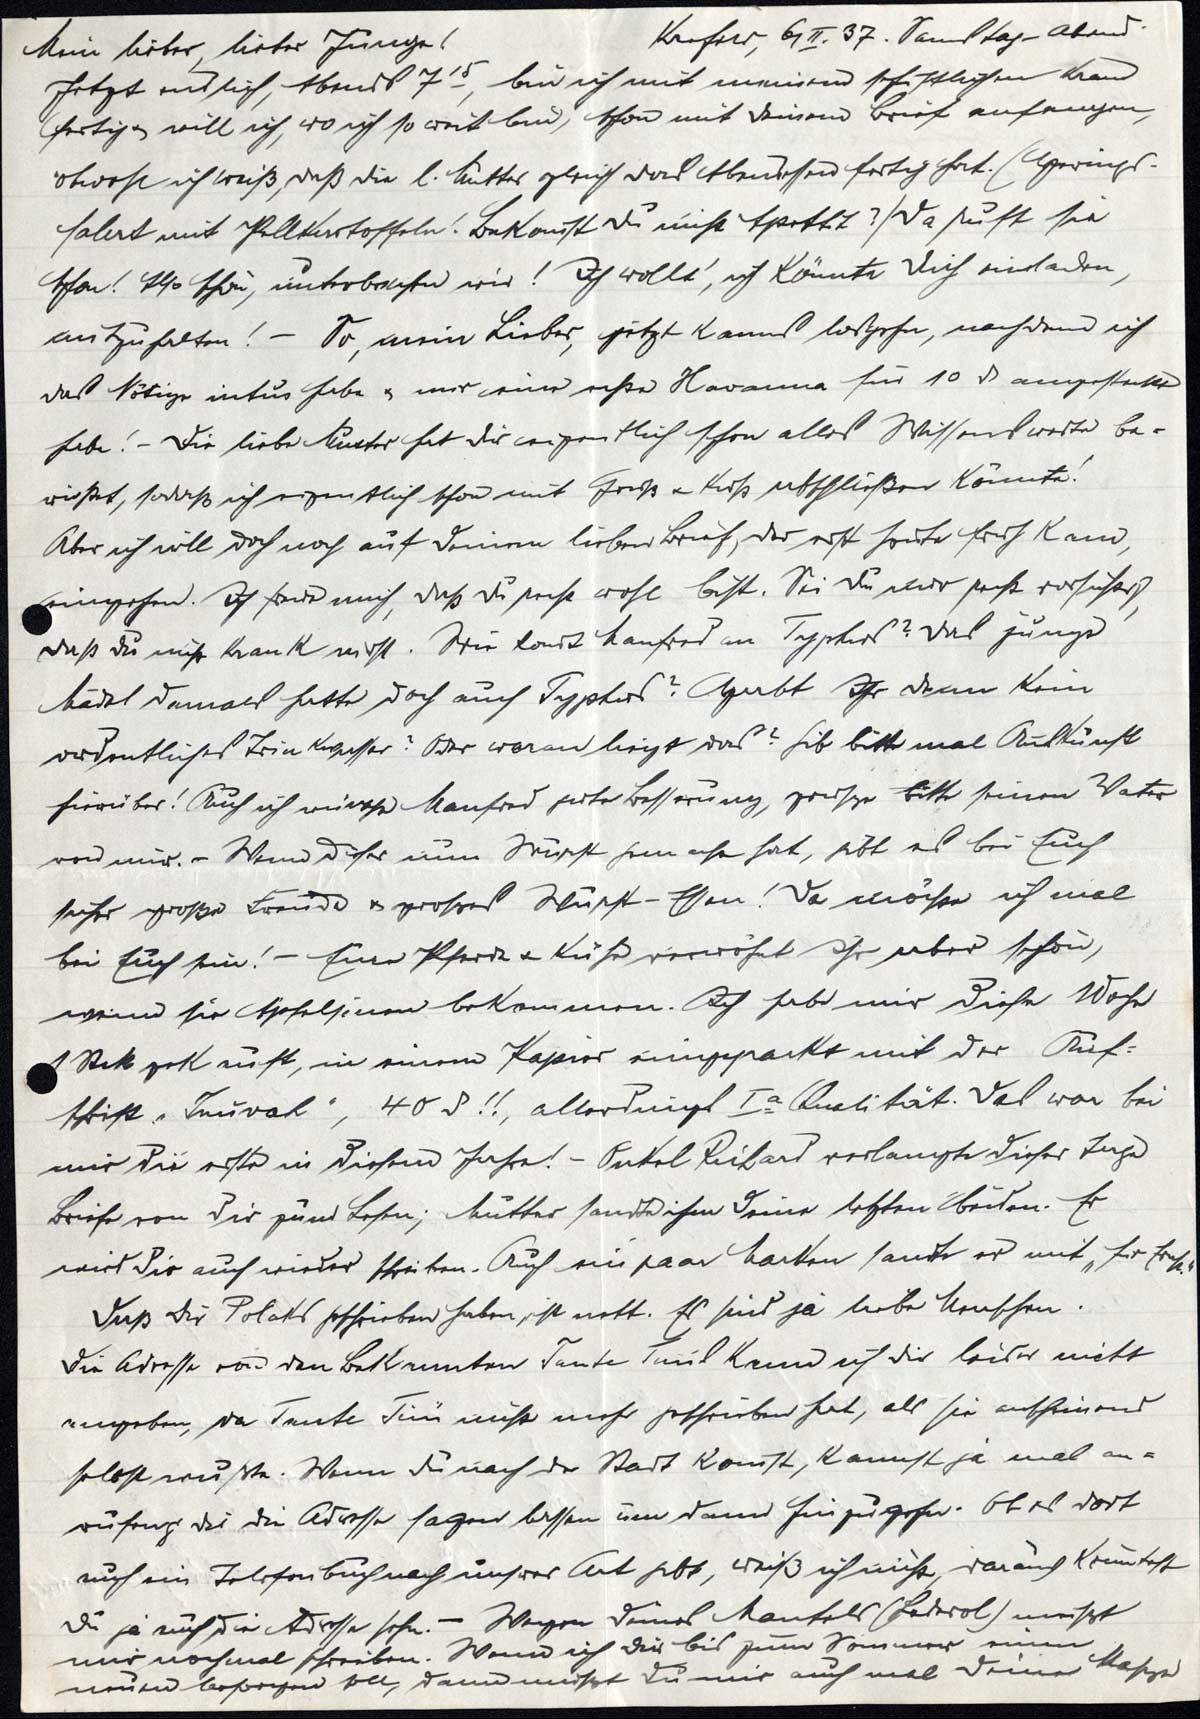 Mein lieber, lieber Junge! Krefeld, 6/II. 37. Samstag-Abend.
Jetzt endlich, Abends 7¹⁵, bin ich mit meinem geschäftlichen Kram
fertig & will ich, wo ich so weit bin, schon mit Deinem Brief anfangen,
obwohl ich weiß, daß die l. Mutter gleich das Abendessen fertig hat. (Herings-
salat mit Pellkartoffeln! Bekommst Du nicht Appetit?) Da ruft sie
schon! Also schön, unterbrechen wir! Ich wollt', ich könnte Dich einladen,
mitzuhalten! – So, mein Lieber, jetzt kanns losgehn, nachdem ich
das Nötige intus habe & mir eine echte Havanna für 10 ₰ angesteckt
habe! – Die liebe Mutter hat Dir eigentlich schon alles Wissenswerte be-
richtet, sodaß ich eigentlich schon mit Gruß & Kuß abschließen könnte!
Aber ich will doch noch auf Deinen lieben Brief, der erst heute früh kam,
eingehen. Ich freue mich, daß Du recht wohl bist. Sei Du nur recht vorsichtig,
daß Du nicht krank wirst. Wie kommt Manfred an Typhus? Das junge
Mädel damals hatte doch auch Typhus? Habt Ihr denn kein
ordentliches Trinkwasser? Oder woran liegt das? Gib bitte mal Auskunft
hierüber! Auch ich wünsche Manfred gute Besserung, grüße bitte seinen Vater
von mir. – Wenn dieser nun Wurst gemacht hat, gibt es bei Euch
sicher große Freude & großes Wurst-Essen! Da möchte ich mal
bei Euch sein! – Eure Pferde & Kühe verwöhnt Ihr aber schön,
wenn sie Apfelsinen bekommen. Ich habe mir diese Woche
1 Stck gekauft, in einem Papier eingepackt mit der Auf-
schrift „ “, 40 ₰!!, allerdings Iᵃ Qualität. Das war bei
mir die erste in diesem Jahre! – Onkel Richard verlangte dieser Tage
Briefe von Dir zum Lesen; Mutter sandte ihm Deine letzten beiden. Er
wird Dir auch wieder schreiben. Auch ein paar Marken sandte er mit „für Ernst.“
Daß Dir Polaks geschrieben haben, ist nett. Es sind ja liebe Menschen.
Die Adresse von den Bekannten Tante kann ich Dir leider nicht
angeben, da Tante nicht mehr geschrieben hat, als sie anscheinend
selbst wußte. Wenn Du nach der Stadt kommst, kannst ja mal an-
rufen & Dir die Adresse sagen lassen um dann hinzugehn. Ob es dort
auch ein Telefonbuch nach unserer Art gibt, weiß ich nicht, daraus könntest
Du ja auch die Adresse sehn. – Wegen Deines Mantels (Lederol) mußt
mir nochmal schreiben. Wenn ich Dir bis zum Sommer einen
neuen besorgen soll, dann müßtest Du mir auch mal Deine Maße